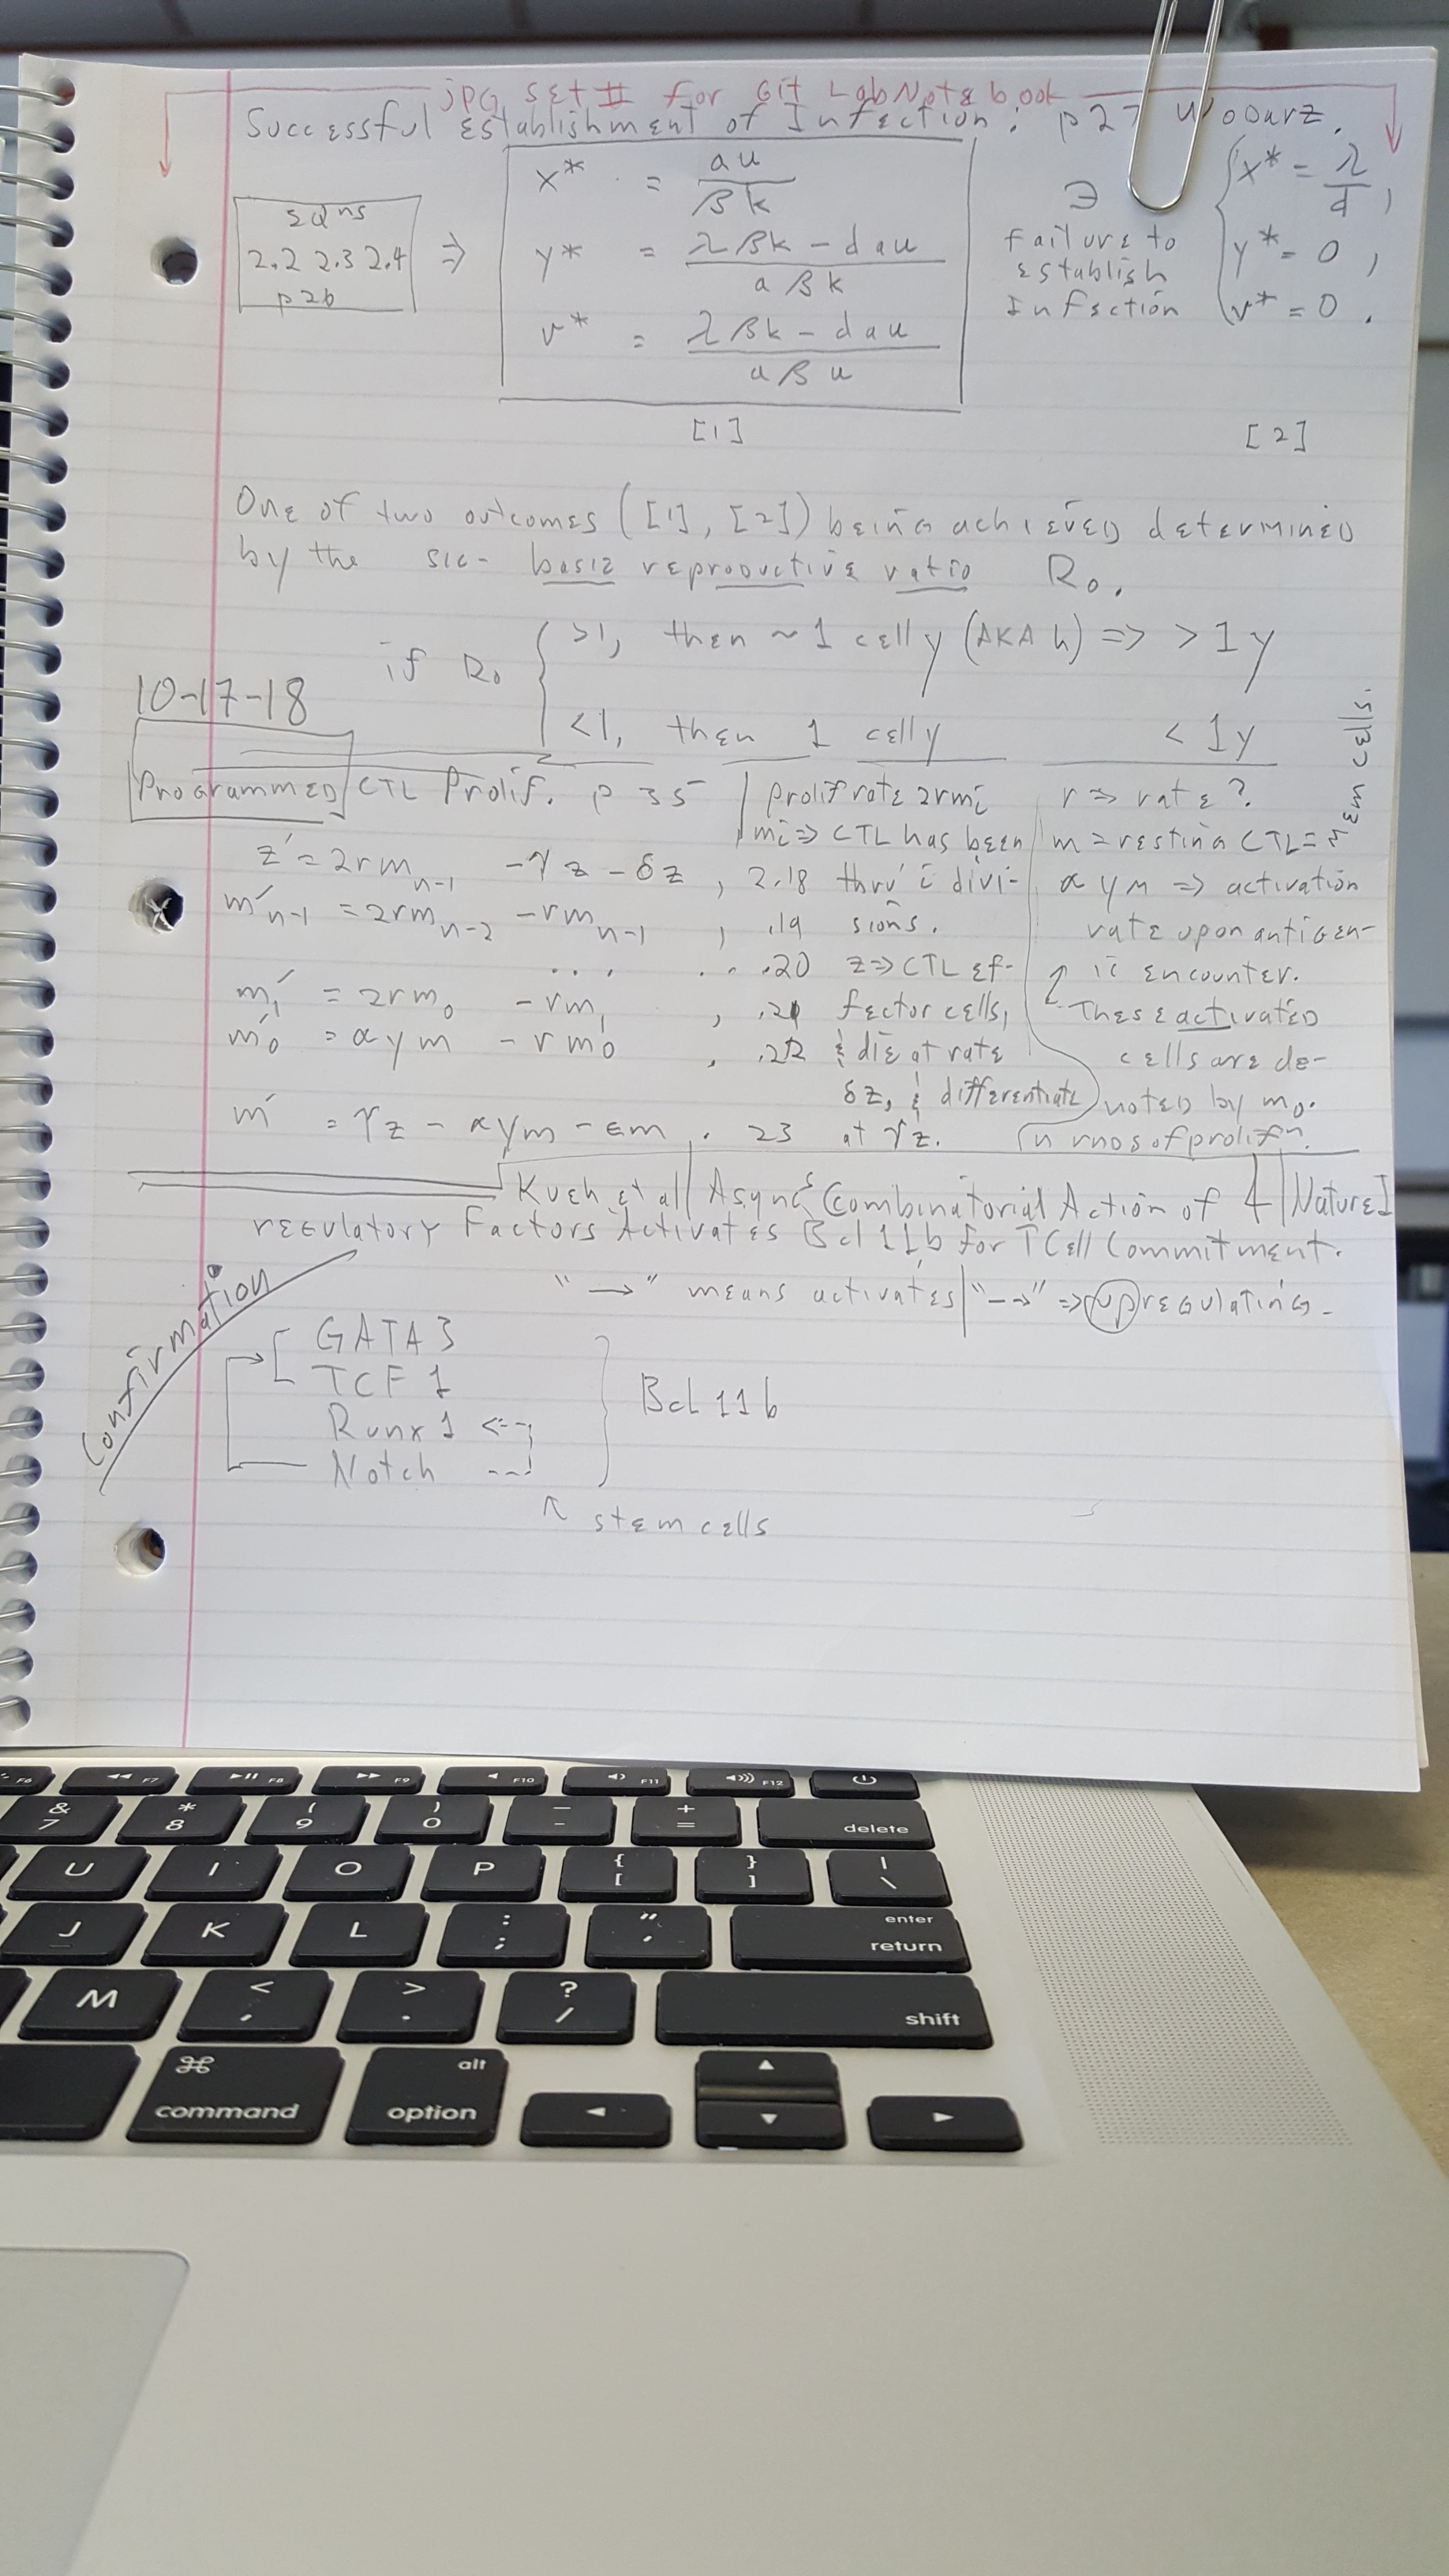 jPG SET # for Git LabNotebook
Successful Establishment of Infection: p27 Wodarz.
EQns
2.2 2.3 2.4
p26
⇒
x* = au / βk
y* = λβk - dau / aβk
v* = λβk - dau / aβu
[1]
∋
failure to
establish
Infection
x* = λ/d,
y* = 0,
v* = 0.
[2]
One of two outcomes ([1], [2]) being achieved determined
by the sic- basic reproductive ratio R₀.
if R₀ { >1, then ~ 1 cell y (AKA h) => > 1y
<1, then 1 cell y < 1y
10-17-18
Programmed CTL Prolif. p 35
z' = 2rm_{n-1} - γz - δz, 2.18
m'_{n-1} = 2rm_{n-2} - rm_{n-1}, .19
.... ... .20
m₁' = 2rm₀ - rm₁, .21
m₀' = αym - rm₀, .22
m' = γz - αym - εm. .23
prolif rate 2rmi
mi => CTL has been
thru' i divi-
sions.
z => CTL ef-
fector cells,
& die at rate
δz, & differentiate
at γz.
r => rate?
m = resting CTL =
stem cells.
αym => activation
rate upon antigen-
ic encounter.
These activated
cells are de-
noted by m₀.
n rnds of prolifⁿ.
Kueh et al | Async Combinatorial Action of 4 | Nature I
regulatory Factors Activates Bcl11b for TCell Commitment.
"→" means activates | "--→" => upregulating.
Confirmation
GATA3
TCF1
Runx1
Notch
Bcl11b
↖ stem cells
F6
F7
F8
F9
F10
F11
F12
& 7
* 8
( 9
) 0
_ -
+ =
delete
U
I
O
P
{ [
} ]
| \
J
K
L
: ;
" '
enter
return
M
< ,
> .
? /
shift
⌘
command
alt
option